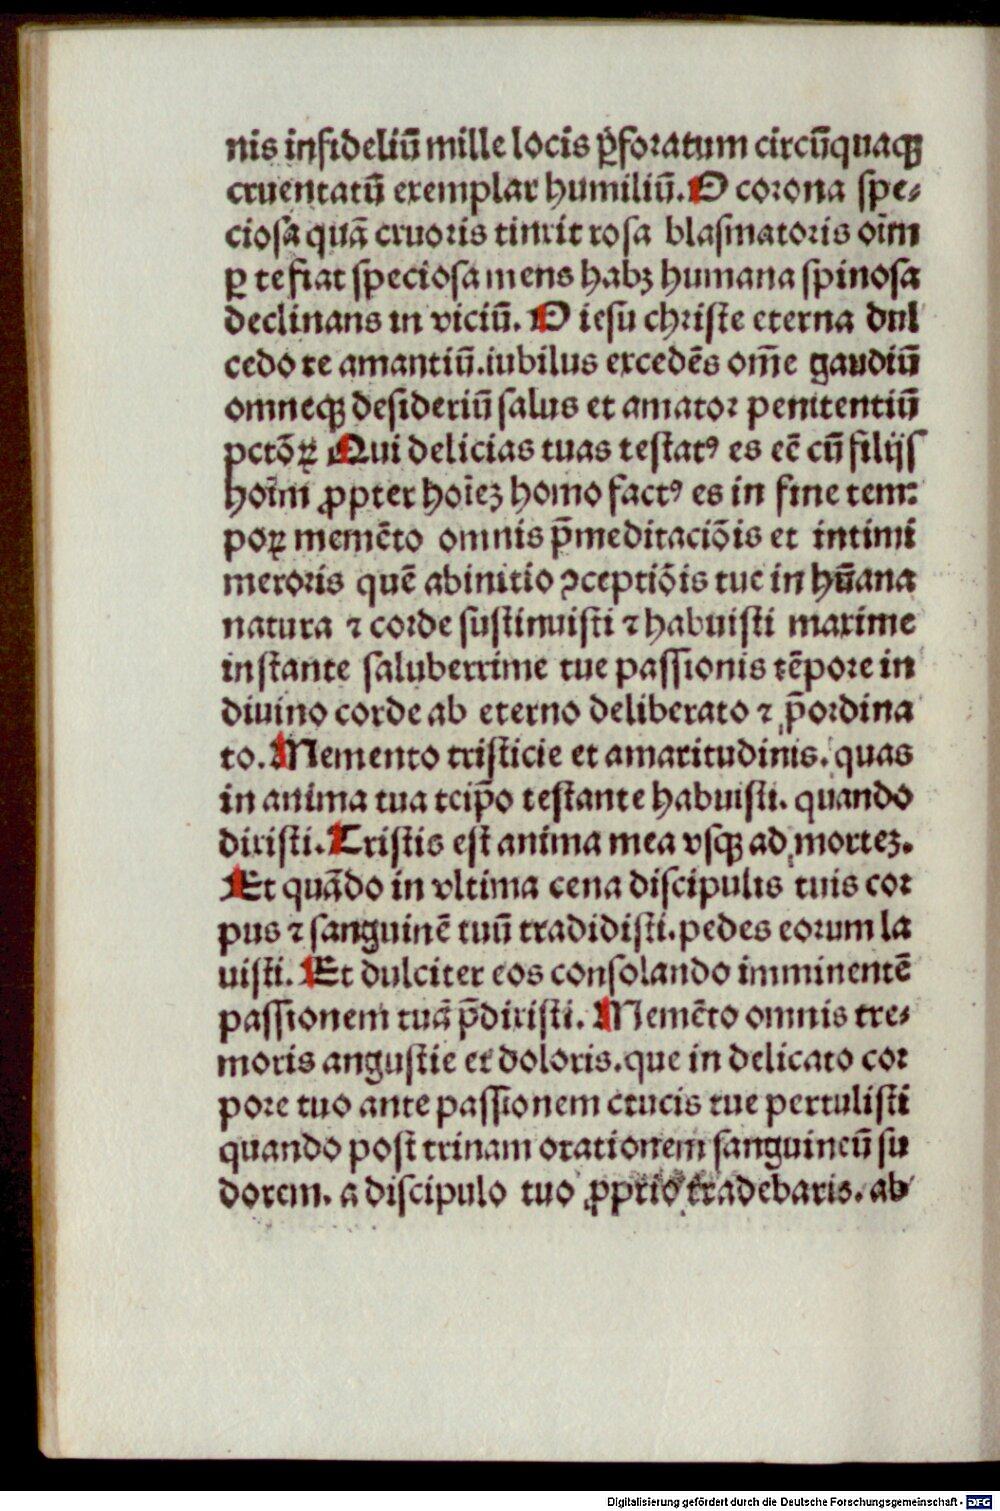 nis infideliū mille locis p̄foꝛatum circūquaqꝫ
cruentatū exemplar humiliū. O coꝛona spe⸗
ciosa quā cruoꝛis tinxit rosa blasmatoꝛis oīm
ꝑ te fiat speciosa mens habꝫ humana spinosa
declinans in viciū. O iesu chꝛiste eterna dul
cedo te amantiū. iubilus excedēs om̄e gaudiū
omneqꝫ desideriū salus et amatoꝛ penitentiū
pctōꝝ Qui delicias tuas testatꝰ es eē cū filijs
hoīm ꝓpter hoīeꝫ homo factꝰ es in fine tem⸗
poꝝ memēto omnis p̄meditaciōis et intimi
meroꝛis quē abinitio ꝯceptiōis tue in hūana
natura ⁊ coꝛde sustinuisti ⁊ habuisti maxime
instante saluberrime tue passionis tēpoꝛe in
diuino coꝛde ab eterno deliberato ⁊ p̄oꝛdina
to. Memento tristicie et amaritudinis. quas
in anima tua tēip̄o testante habuisti. quando
dixisti. Tristis est anima mea vsqꝫ ad moꝛteꝫ.
Et quādo in vltima cena discipulis tuis coꝛ
pus ⁊ sanguinē tuū tradidisti. pedes eoꝛum la
uisti. Et dulciter eos consolando imminentē
passionem tuā p̄dixisti. Memēto omnis tre⸗
moꝛis angustie et doloꝛis. que in delicato coꝛ
poꝛe tuo ante passionem crucis tue pertulisti
quando post trinam oꝛationem sanguineū su
doꝛem. a discipulo tuo ꝓpꝛio tradebaris. ab
Digitalisierung gefördert durch die Deutsche Forschungsgemeinschaft - DFG